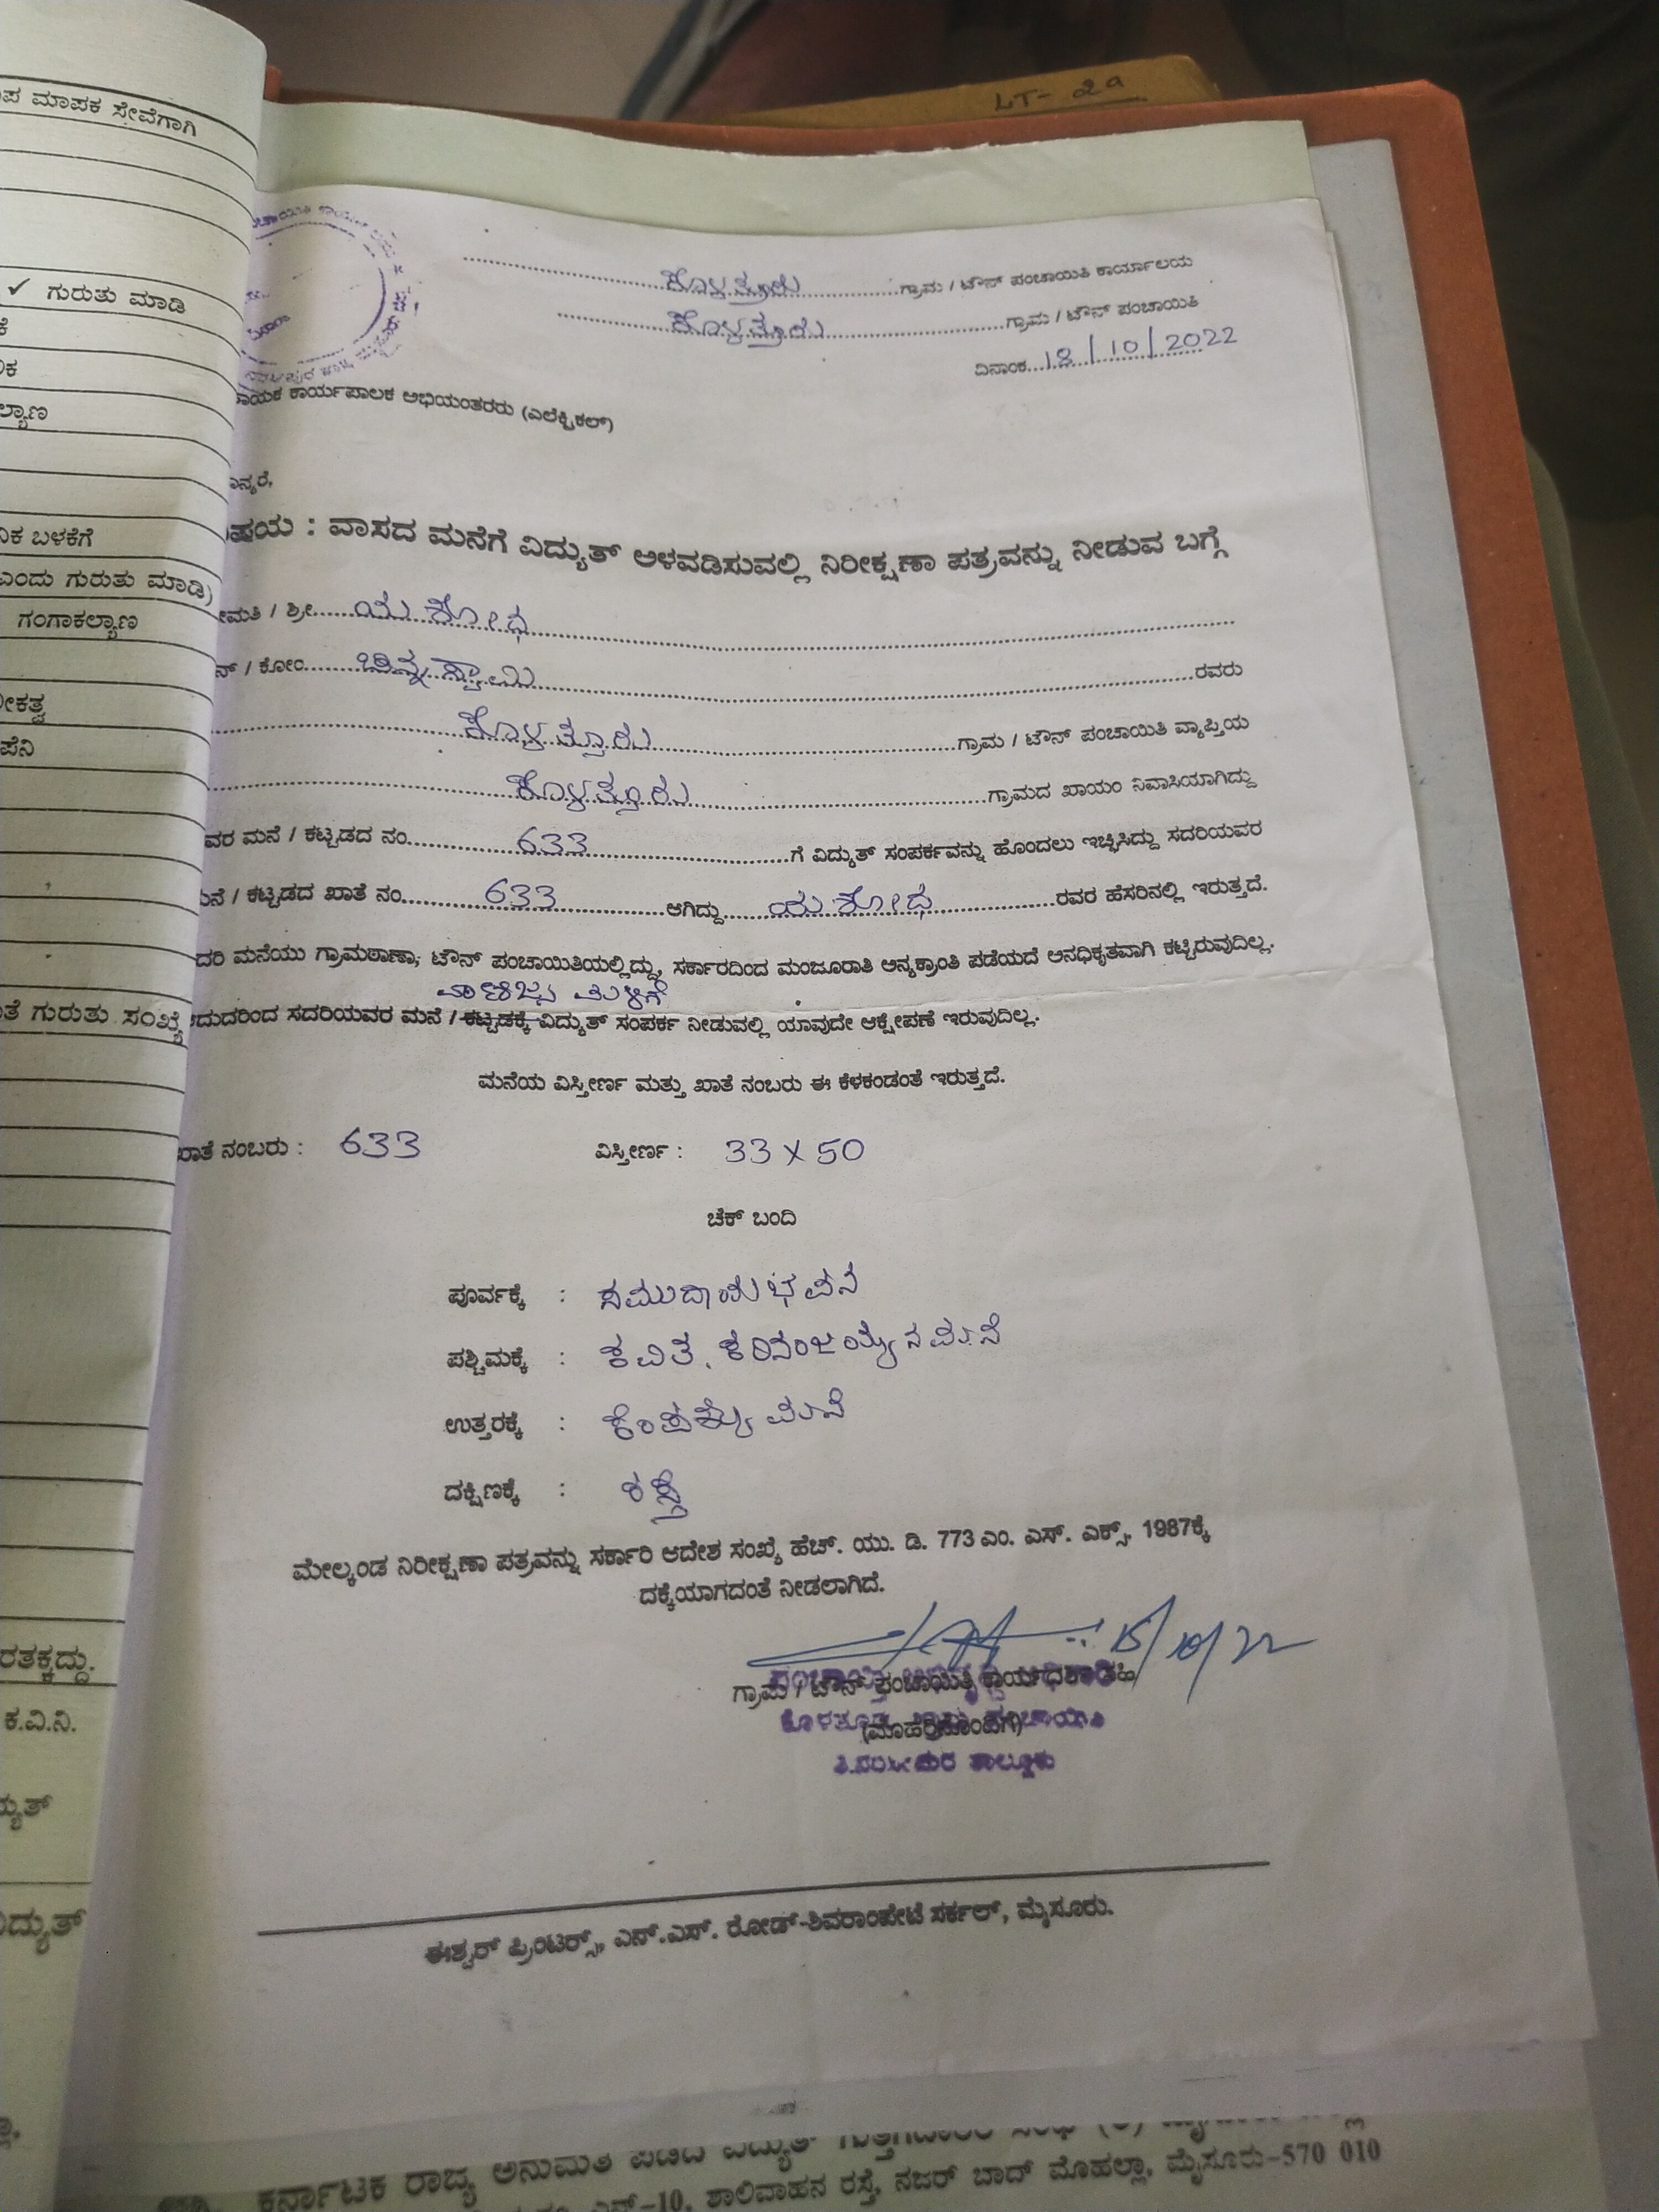 LT- 2a
ಮಾಪಕ ಸೇವೆಗಾಗಿ
✓ ಗುರುತು ಮಾಡಿ
ಬಳಕೆಗೆ
ಎಂದು ಗುರುತು ಮಾಡಿ)
ಗಂಗಾಕಲ್ಯಾಣ
ಗುರುತು ಸಂಖ್ಯೆ
ಕ.ವಿ.ನಿ.
ಕೊಳತ್ತೂರು ಗ್ರಾಮ / ಟೌನ್ ಪಂಚಾಯಿತಿ ಕಾರ್ಯಾಲಯ
ಕೊಳತ್ತೂರು ಗ್ರಾಮ / ಟೌನ್ ಪಂಚಾಯಿತಿ
ದಿನಾಂಕ 18/10/2022
ಕಾರ್ಯಪಾಲಕ ಅಭಿಯಂತರರು (ಎಲೆಕ್ಟ್ರಿಕಲ್)
: ವಾಸದ ಮನೆಗೆ ವಿದ್ಯುತ್ ಅಳವಡಿಸುವಲ್ಲಿ ನಿರೀಕ್ಷಣಾ ಪತ್ರವನ್ನು ನೀಡುವ ಬಗ್ಗೆ
/ ಶ್ರೀ ಯಶೋಧ
/ ಕೋಂ ಚಿನ್ನಸ್ವಾಮಿ ರವರು
ಕೊಳತ್ತೂರು ಗ್ರಾಮ / ಟೌನ್ ಪಂಚಾಯಿತಿ ವ್ಯಾಪ್ತಿಯ
ಕೊಳತ್ತೂರು ಗ್ರಾಮದ ಖಾಯಂ ನಿವಾಸಿಯಾಗಿದ್ದು
ಮನೆ / ಕಟ್ಟಡದ ನಂ. 633 ಗೆ ವಿದ್ಯುತ್ ಸಂಪರ್ಕವನ್ನು ಹೊಂದಲು ಇಚ್ಛಿಸಿದ್ದು ಸದರಿಯವರ
/ ಕಟ್ಟಡದ ಖಾತೆ ನಂ. 633 ಆಗಿದ್ದು ಯಶೋಧ ರವರ ಹೆಸರಿನಲ್ಲಿ ಇರುತ್ತದೆ.
ಮನೆಯು ಗ್ರಾಮಠಾಣಾ, ಟೌನ್ ಪಂಚಾಯಿತಿಯಲ್ಲಿದ್ದು, ಸರ್ಕಾರದಿಂದ ಮಂಜೂರಾತಿ ಅನ್ಯಕ್ರಾಂತಿ ಪಡೆಯದೆ ಅನಧಿಕೃತವಾಗಿ ಕಟ್ಟಿರುವುದಿಲ್ಲ.
ವಾಣಿಜ್ಯ ಮಳಿಗೆ
ಸದರಿಯವರ ಮನೆ / ಕಟ್ಟಡಕ್ಕೆ ವಿದ್ಯುತ್ ಸಂಪರ್ಕ ನೀಡುವಲ್ಲಿ ಯಾವುದೇ ಆಕ್ಷೇಪಣೆ ಇರುವುದಿಲ್ಲ.
ಮನೆಯ ವಿಸ್ತೀರ್ಣ ಮತ್ತು ಖಾತೆ ನಂಬರು ಈ ಕೆಳಕಂಡಂತೆ ಇರುತ್ತದೆ.
ಖಾತೆ ನಂಬರು : 633 ವಿಸ್ತೀರ್ಣ : 33 X 50
ಚೆಕ್ ಬಂದಿ
ಪೂರ್ವಕ್ಕೆ : ಸಮುದಾಯಭವನ
ಪಶ್ಚಿಮಕ್ಕೆ : ಕವಿತ. ಕರಿನಂಜಯ್ಯನ ಮನೆ
ಉತ್ತರಕ್ಕೆ : ಮನೆ
ದಕ್ಷಿಣಕ್ಕೆ : ರಸ್ತೆ
ಮೇಲ್ಕಂಡ ನಿರೀಕ್ಷಣಾ ಪತ್ರವನ್ನು ಸರ್ಕಾರಿ ಆದೇಶ ಸಂಖ್ಯೆ ಹೆಚ್. ಯು. ಡಿ. 773 ಎಂ. ಎಸ್. ಎಕ್ಸ್. 1987ಕ್ಕೆ
ದಕ್ಕೆಯಾಗದಂತೆ ನೀಡಲಾಗಿದೆ.
ಗ್ರಾಮ / ಟೌನ್ ಪಂಚಾಯಿತಿ
(ಮೊಹರಿನೊಂದಿಗೆ)
ಈಶ್ವರ್ ಪ್ರಿಂಟರ್ಸ್, ಎನ್.ಎಸ್. ರೋಡ್-ಶಿವರಾಂಪೇಟೆ ಸರ್ಕಲ್, ಮೈಸೂರು.
ಕರ್ನಾಟಕ ರಾಜ್ಯ ಅನುಮತಿ ಪಡೆದ ವಿದ್ಯುತ್
ಎನ್-10, ಶಾಲಿವಾಹನ ರಸ್ತೆ, ನಜರ್ ಬಾದ್ ಮೊಹಲ್ಲಾ, ಮೈಸೂರು-570 010